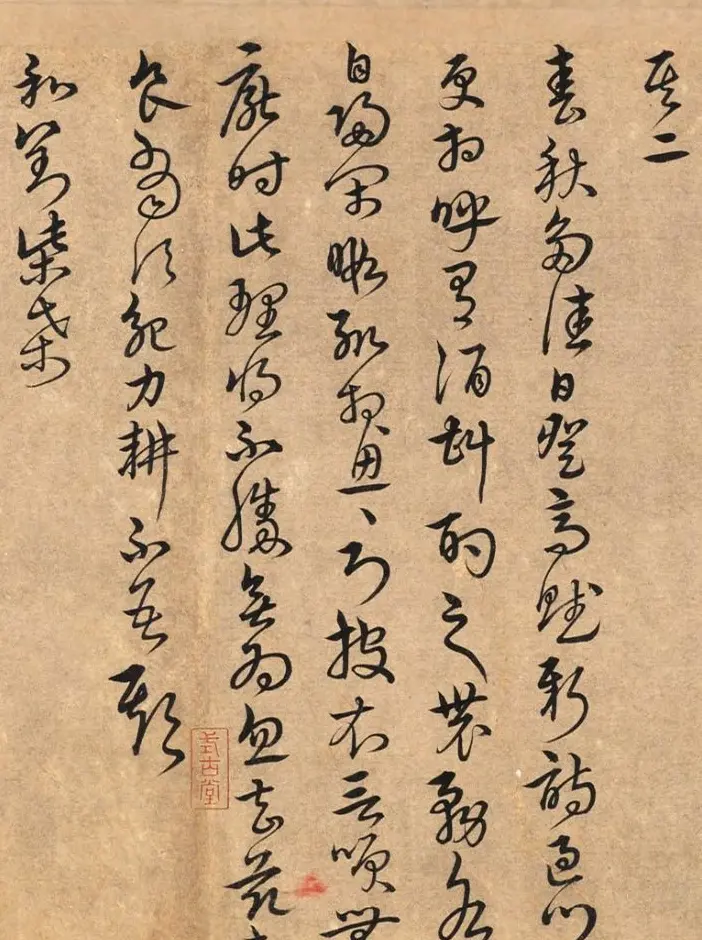 其二
春秋多佳日登高賦新詩過門
更相呼有酒斟酌之農務各
自歸閑暇輒相思〻則披衣言笑無
厭時此理將不勝無為忽去茲衣
食當須紀力耕不吾欺
式古堂
和劉柴桑